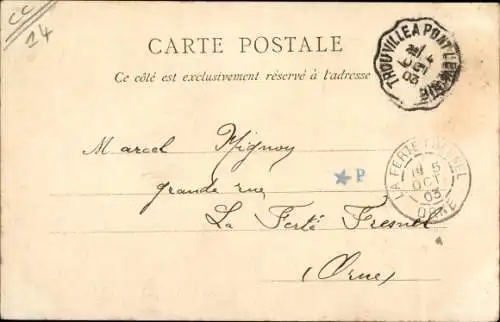 CC
14
CARTE POSTALE
Ce côté est exclusivement réservé à l'adresse
TROUVILLE A PONT L'EVEQUE
03
Marcel Mignoy
grande rue
La Ferté Fresnel
(Orne)
★ P
LA FERTE FRESNEL
5
OCT
03
ORNE